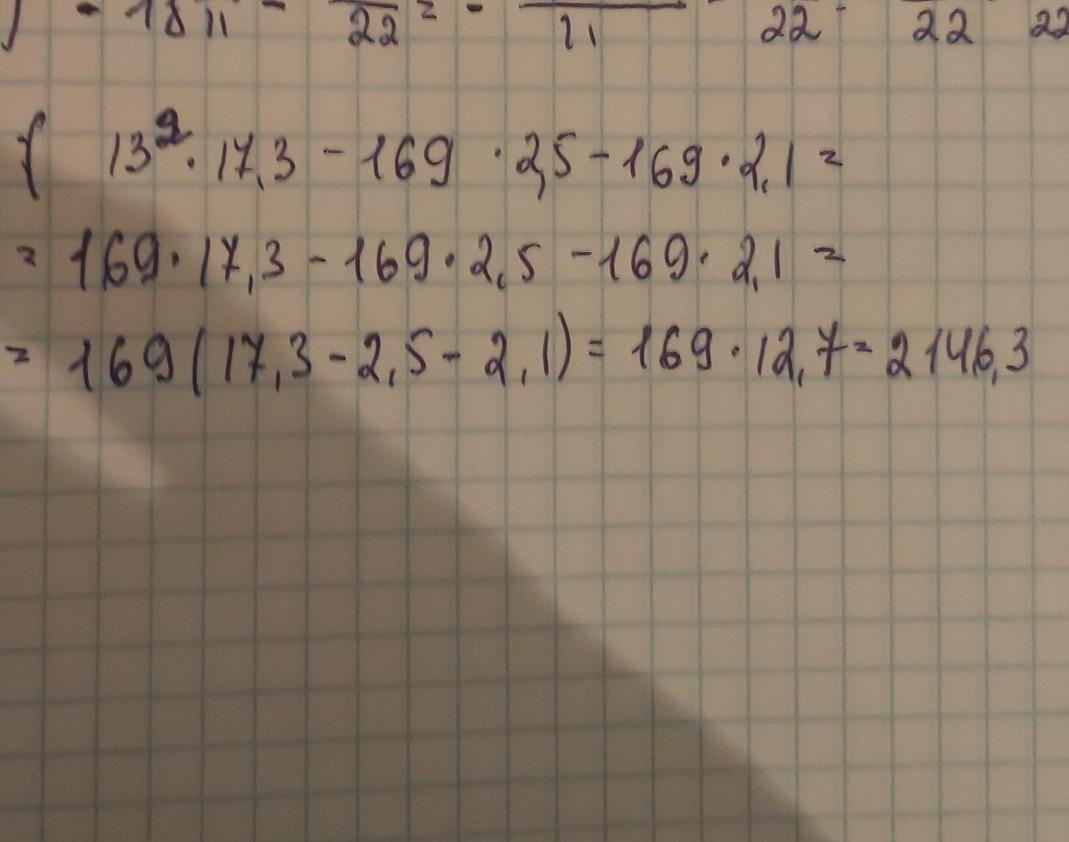 - 18 11 - 22 = - 21 - 22 - 22 22
13². 17,3 - 169 · 2,5 - 169 · 2,1 =
= 169 · 17,3 - 169 · 2,5 - 169 · 2,1 =
= 169 (17,3 - 2,5 - 2,1) = 169 · 12,7 = 2146,3